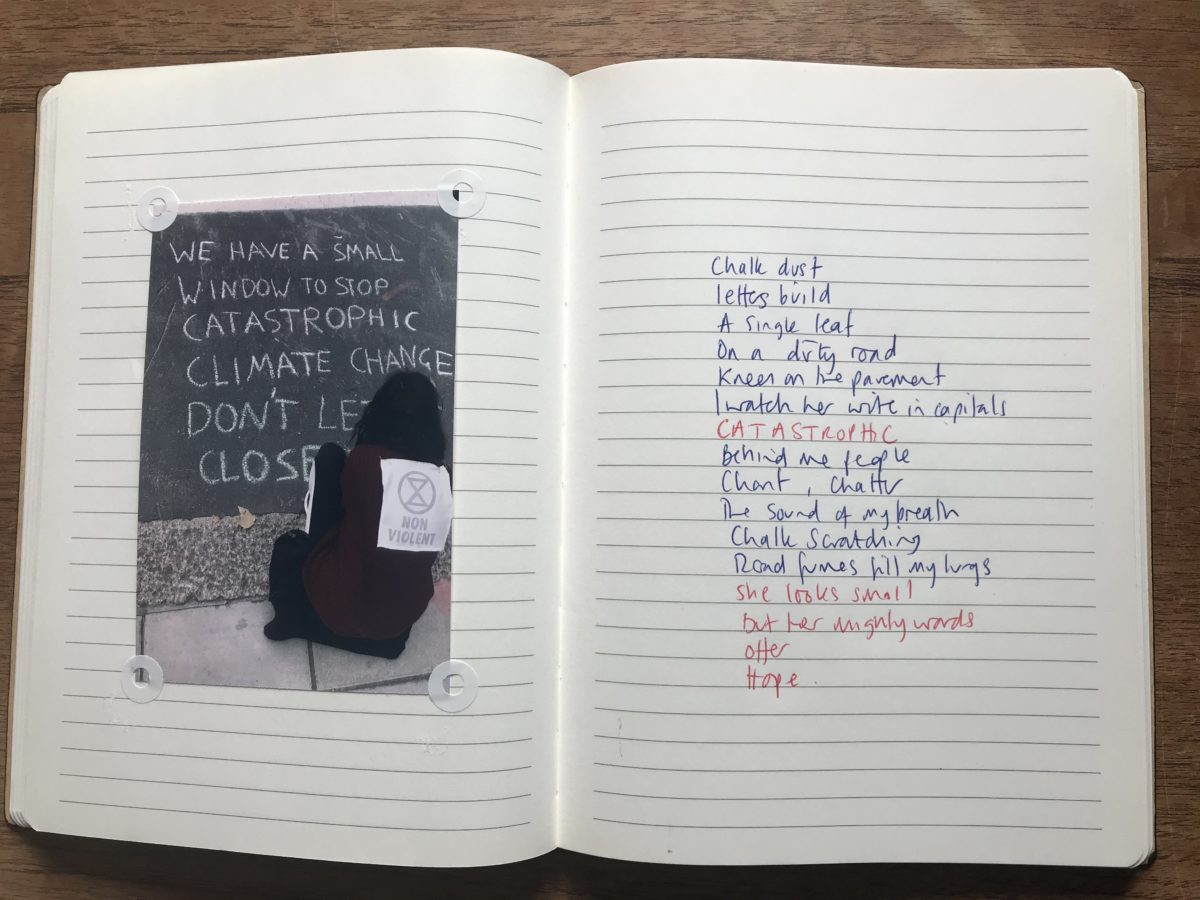 WE HAVE A SMALL
WINDOW TO STOP
CATASTROPHIC
CLIMATE CHANGE
DON'T LE
CLOSE
NON
VIOLENT
Chalk dust
letters build
A single leaf
On a dirty road
Knees on the pavement
I watch her write in capitals
CATASTROPHIC
Behind me people
Chant, chatter
The sound of my breath
Chalk scratching
Road fumes fill my lungs
She looks small
but her mighty words
offer
Hope.